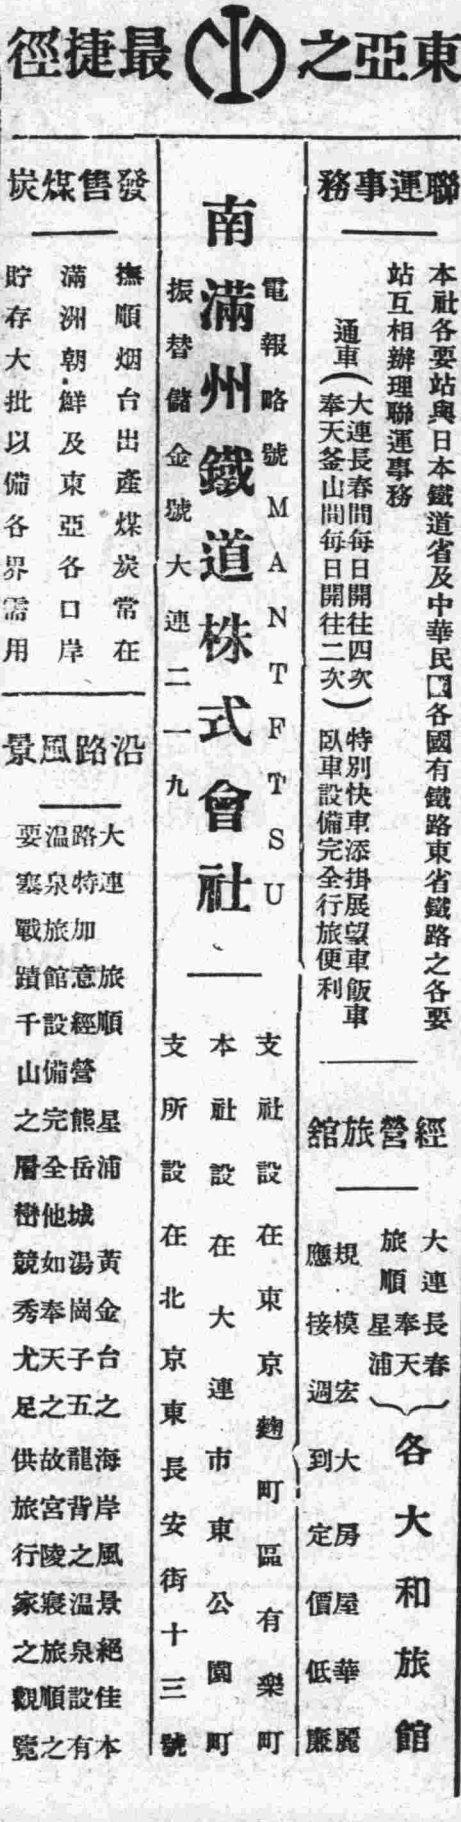 東亞之最捷徑
聯運事務
本社各要站與日本鐵道省及中華民國各國有鐵路東省鐵路之各要
站互相辦理聯運事務
通車（大連長春間每日開往四次
奉天釜山間每日開往二次）
特別快車添掛展望車飯車
臥車設備完全行旅便利
經營旅舘
大連長春
旅順奉天
星浦
各大和旅館
規模宏大房屋華麗
應接週到定價低廉
電報略號MANTFTSU
南滿州鐵道株式會社
振替儲金號大連二一九
支社設在東京麴町區有樂町
本社設在大連市東公園町
支所設在北京東長安街十三號
發售煤炭
撫順烟台出產煤炭常在
滿洲朝鮮及東亞各口岸
貯存大批以備各界需用
沿路風景
大連旅順星浦黃金台之海岸風景絕佳本
路特加意經營熊岳城湯崗子五龍背之溫泉設有
溫泉旅館設備完全他如奉天之故宮陵寢旅順之
要塞戰蹟千山之層巒競秀尤足供旅行家之觀覽